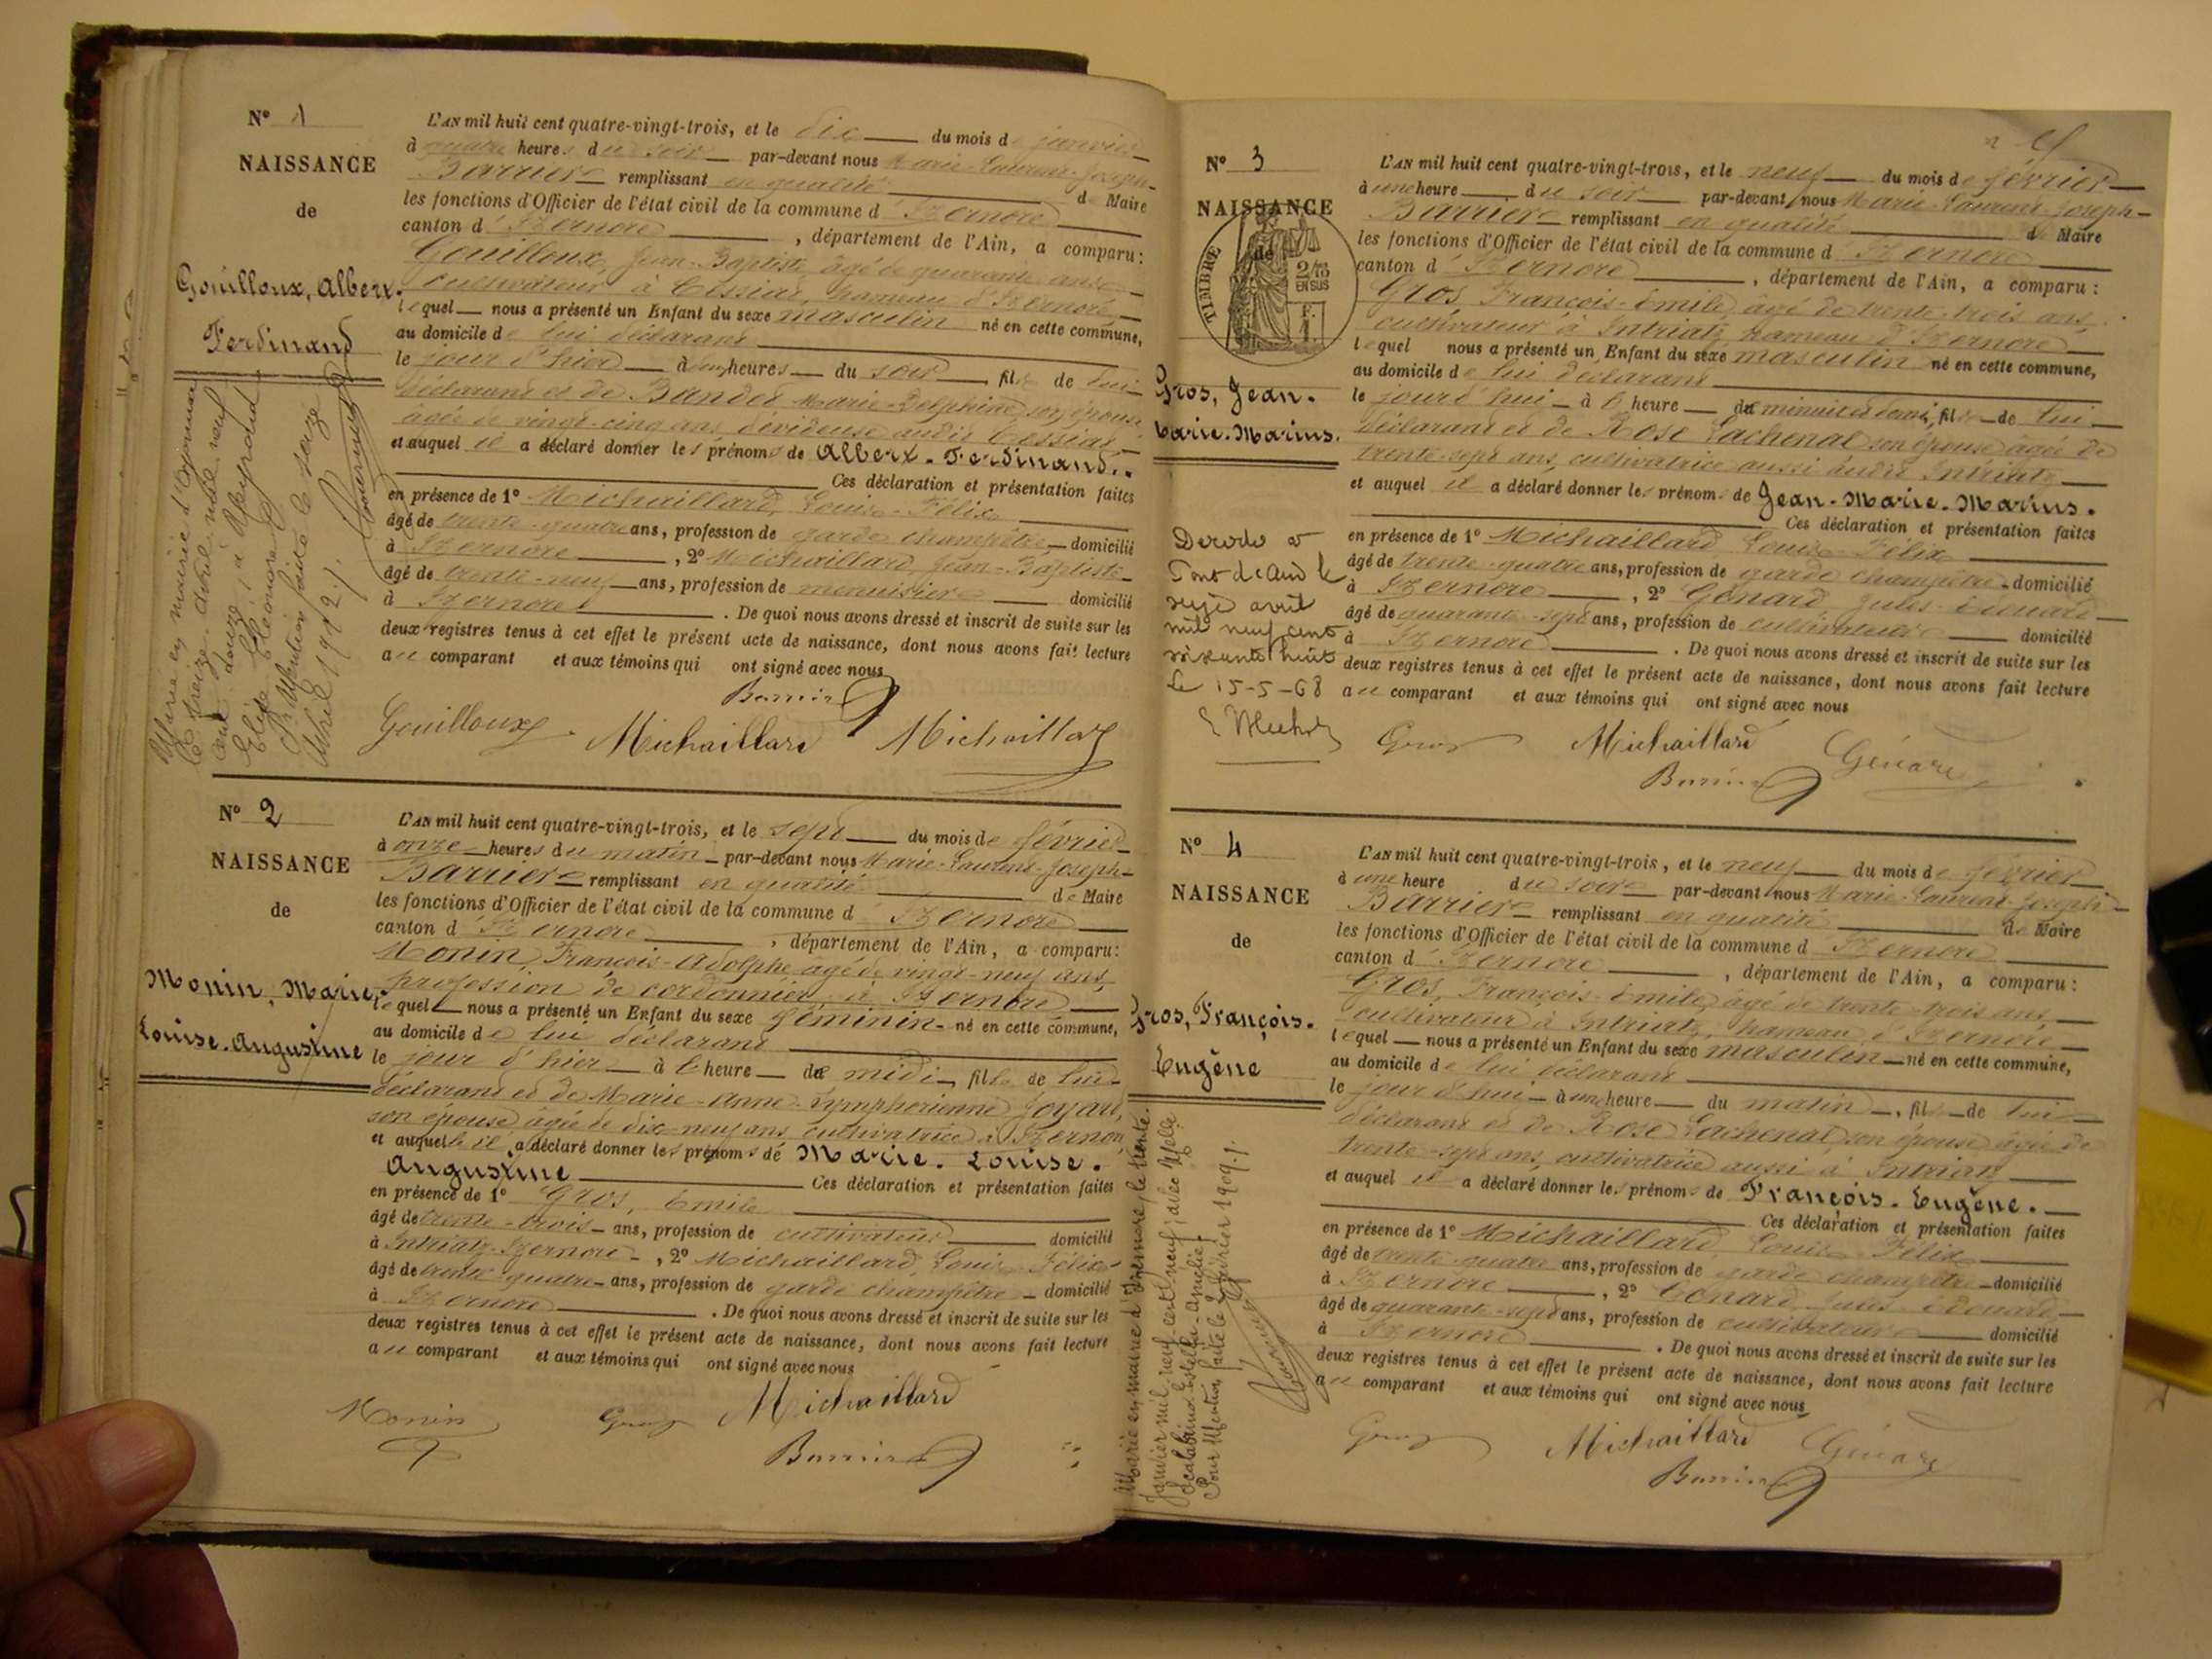 N° 1
NAISSANCE
de
Gouilloux, Albert.
Ferdinand
L'AN mil huit cent quatre-vingt-trois, et le dix du mois de janvier
à quatre heures du soir par-devant nous Marie-Laurent-Joseph-
Barrière remplissant en qualité de Maire
les fonctions d'Officier de l'état civil de la commune d'Izernore
canton d'Izernore, département de l'Ain, a comparu:
Gouilloux, Jean-Baptiste, âgé de quarante ans
cultivateur à Cessiat, hameau d'Izernore,
lequel nous a présenté un Enfant du sexe masculin né en cette commune,
au domicile de lui déclarant
le jour d'hier à heures du soir, fils de lui
déclarant et de Bandet Marie-Delphine, son épouse
âgée de vingt-cinq ans, dévideuse audit Cessiat
et auquel il a déclaré donner les prénoms de Albert-Ferdinand.
Ces déclaration et présentation faites
en présence de 1° Michaillard, Louis-Félix
âgé de trente-quatre ans, profession de garde champêtre domicilié
à Izernore, 2° Michaillard, Jean-Baptiste
âgé de trente-neuf ans, profession de menuisier domicilié
à Izernore. De quoi nous avons dressé et inscrit de suite sur les
deux registres tenus à cet effet le présent acte de naissance, dont nous avons fait lecture
au comparant et aux témoins qui ont signé avec nous
Barrière
Gouilloux Michaillard Michaillard
Marié en mairie d'Oyonnax
le treize avril mil neuf
cent douze, à Reyraud
Elise Eléonore
Pr Mention faite le seize
Avril 1912
N° 2
NAISSANCE
de
Monin, Marie.
Louise. Augustine
L'AN mil huit cent quatre-vingt-trois, et le sept du mois de février
à onze heures du matin par-devant nous Marie-Laurent-Joseph-
Barrière remplissant en qualité de Maire
les fonctions d'Officier de l'état civil de la commune d'Izernore
canton d'Izernore, département de l'Ain, a comparu:
Monin, François-Adolphe âgé de vingt-neuf ans,
profession de cordonnier à Izernore
lequel nous a présenté un Enfant du sexe féminin né en cette commune,
au domicile de lui déclarant
le jour d'hier à 1 heure de midi, fille de lui
déclarant et de Marie-Anne-Symphorienne Joyard,
son épouse âgée de dix-neuf ans cultivatrice à Izernore
et auquel il a déclaré donner les prénoms de Marie. Louise.
Augustine Ces déclaration et présentation faites
en présence de 1° Gros, Emile
âgé de trente-trois ans, profession de cultivateur domicilié
à Intriatz-Izernore, 2° Michaillard, Louis-Félix
âgé de trente-quatre ans, profession de garde champêtre domicilié
à Izernore. De quoi nous avons dressé et inscrit de suite sur les
deux registres tenus à cet effet le présent acte de naissance, dont nous avons fait lecture
au comparant et aux témoins qui ont signé avec nous
Monin Gros Michaillard
Barrière
N° 3
NAISSANCE
de
TIMBRE
2/10
EN SUS
F.
1
Gros, Jean.
Marie. Marius.
Décédé à
Pont de Claud le
seize avril
mil neuf cent
soixante huit
Le 15-5-68
L'AN mil huit cent quatre-vingt-trois, et le neuf du mois de février
à une heure du soir par-devant nous Marie-Laurent-Joseph-
Barrière remplissant en qualité de Maire
les fonctions d'Officier de l'état civil de la commune d'Izernore
canton d'Izernore, département de l'Ain, a comparu:
Gros, François-Emile, âgé de trente-trois ans,
cultivateur à Intriatz, hameau d'Izernore
lequel nous a présenté un Enfant du sexe masculin né en cette commune,
au domicile de lui déclarant
le jourd'hui à l'heure de minuit et demi, fils de lui
déclarant et de Rose Lachenal son épouse âgée de
trente-sept ans, cultivatrice aussi audit Intriatz
et auquel il a déclaré donner les prénoms de Jean-Marie-Marius.
Ces déclaration et présentation faites
en présence de 1° Michaillard Louis-Félix
âgé de trente-quatre ans, profession de garde champêtre domicilié
à Izernore, 2° Génard, Jules-Edouard
âgé de quarante-sept ans, profession de cultivateur domicilié
à Izernore. De quoi nous avons dressé et inscrit de suite sur les
deux registres tenus à cet effet le présent acte de naissance, dont nous avons fait lecture
au comparant et aux témoins qui ont signé avec nous
Gros Michaillard Génard
Barrière
N° 4
NAISSANCE
de
Gros, François.
Eugène
L'AN mil huit cent quatre-vingt-trois, et le neuf du mois de février
à une heure du soir par-devant nous Marie-Laurent-Joseph-
Barrière remplissant en qualité de Maire
les fonctions d'Officier de l'état civil de la commune d'Izernore
canton d'Izernore, département de l'Ain, a comparu:
Gros, François-Emile, âgé de trente-trois ans,
cultivateur à Intriatz, hameau d'Izernore
lequel nous a présenté un Enfant du sexe masculin né en cette commune,
au domicile de lui déclarant
le jourd'hui à une heure du matin, fils de lui
déclarant et de Rose Lachenal, son épouse âgée de
trente-sept ans, cultivatrice aussi à Intriatz
et auquel il a déclaré donner les prénoms de François-Eugène.
Ces déclaration et présentation faites
en présence de 1° Michaillard, Louis-Félix
âgé de trente-quatre ans, profession de garde champêtre domicilié
à Izernore, 2° Génard, Jules-Edouard,
âgé de quarante-sept ans, profession de cultivateur domicilié
à Izernore. De quoi nous avons dressé et inscrit de suite sur les
deux registres tenus à cet effet le présent acte de naissance, dont nous avons fait lecture
au comparant et aux témoins qui ont signé avec nous
Gros Michaillard Génard
Barrière
Marié en mairie d'Izernore, le trente
Janvier mil neuf cent neuf, avec Melle
Scalabrino Estella-Amélie.
Pour Mention, faite le Février 1909.